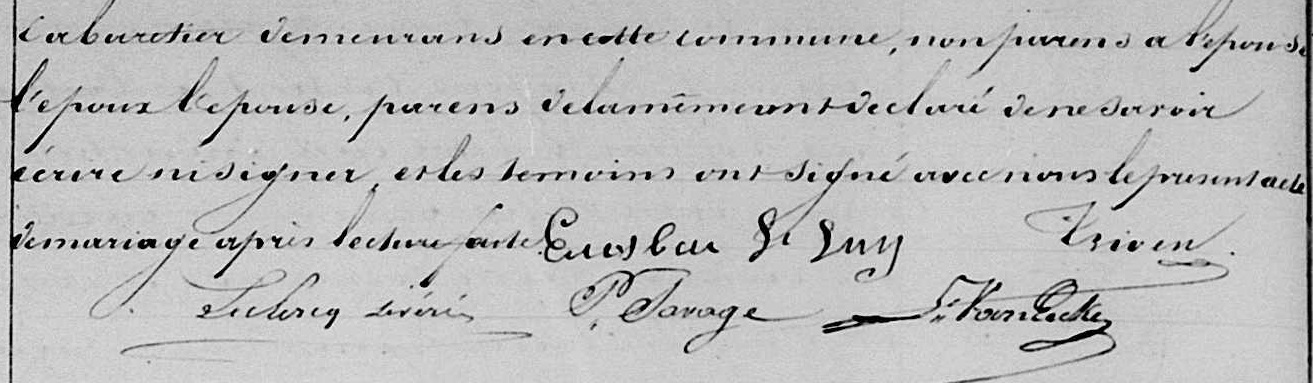 Cabaretier demeurans en cette commune, non parens a l'epouse
l'epoux l'epouse, parens de la même ont declaré de ne savoir
écrire ni signer, et les temoins ont signé avec nous le present acte
de mariage après lecture faite.
Leclercq Sévérin P. Savage